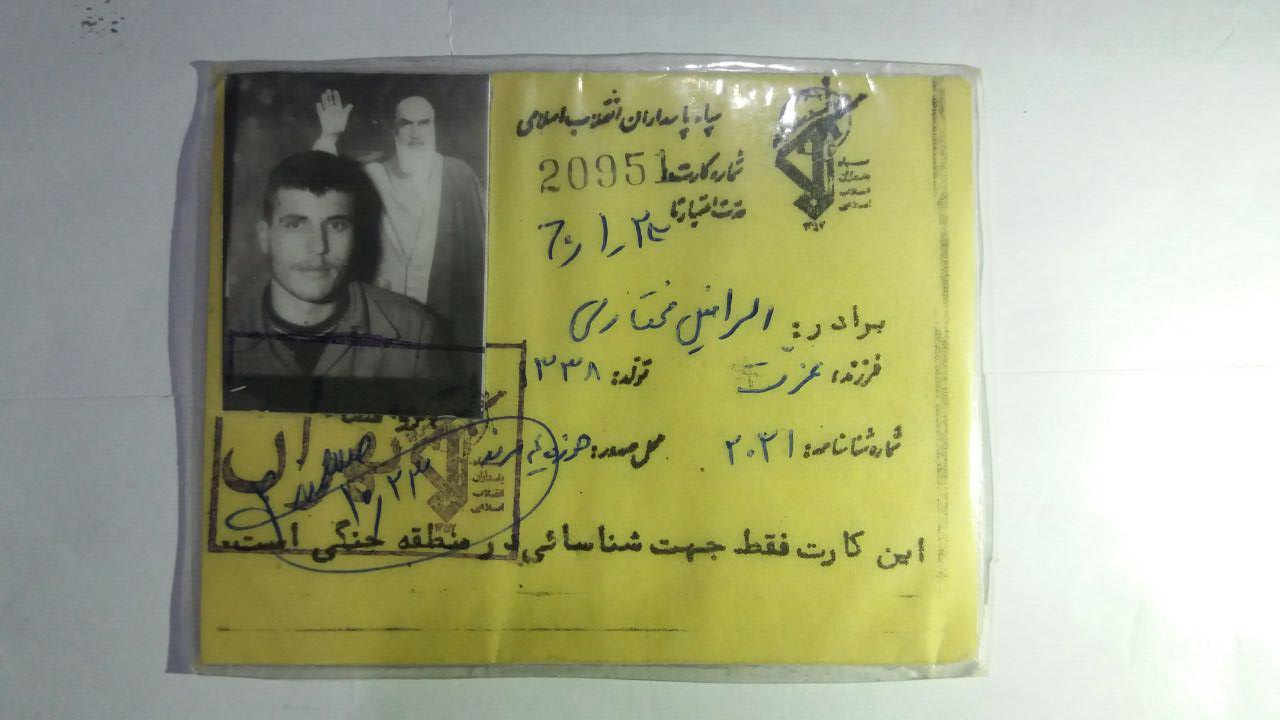 سپاه پاسداران انقلاب اسلامی
شماره کارت: 20951
مدت اعتبار تا
برادر: مختاری
فرزند: عزت تولد: ۳۳۸
شماره شناسنامه: ۲۰۲۱ محل صدور:
این کارت فقط جهت شناسائی در منطقه جنگی است.
سپاه
پاسداران
انقلاب
اسلامی
پاسداران
انقلاب
اسلامی
۱۰/۲۳